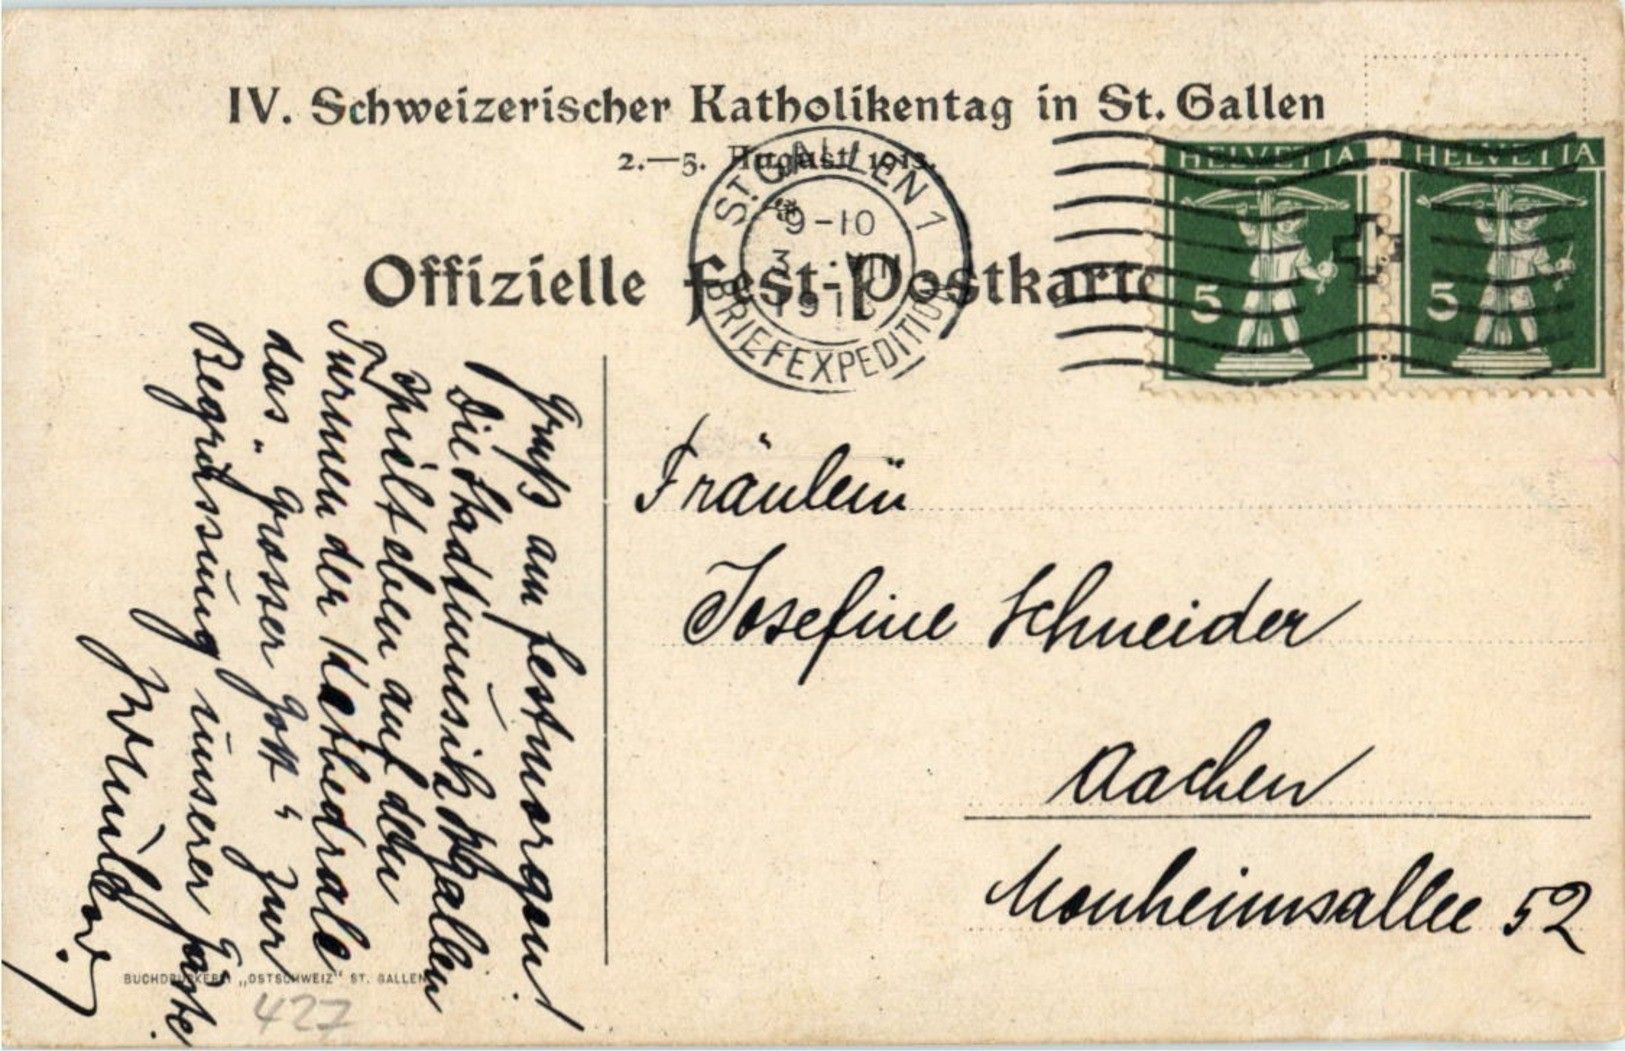 IV. Schweizerischer Katholikentag in St. Gallen
2.—5. August 1913.
Offizielle Fest-Postkarte
ST. GALLEN 1
9-10
3 VIII
BRIEFEXPEDITION
HELVETIA
5
HELVETIA
5
Gruß am Festmorgen!
Die Stadtmusik St. Gallen
spielt eben auf den
Türmen der Kathedrale
das „Grosser Gott“ zur
Begrüssung unserer Gäste.
Fräulein
Josefine Schneider
Aachen
Monheimsallee 52
BUCHDRUCKEREI „OSTSCHWEIZ“ ST. GALLEN
427